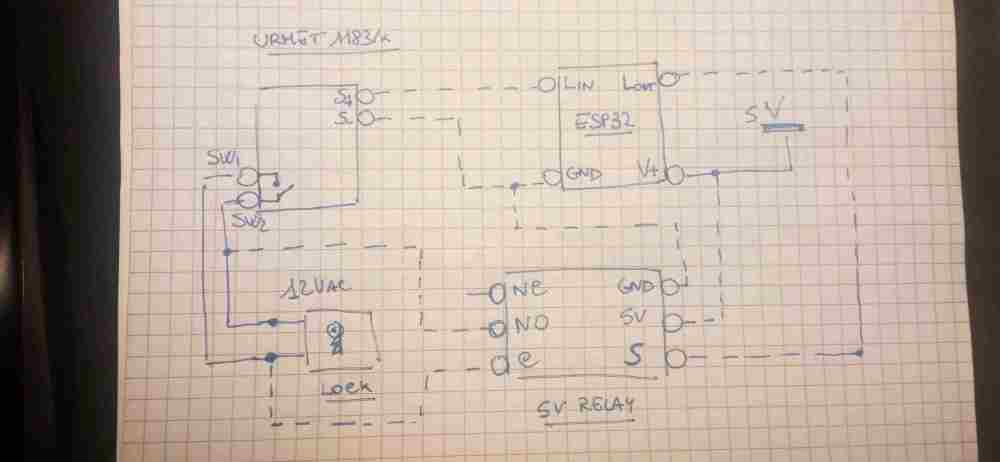 URMET 1183/K
S+
S-
LIN
LOUT
ESP32
5V
SW1
GND
V+
SW2
12VAC
NC
GND
NO
5V
C
S
LOCK
5V RELAY